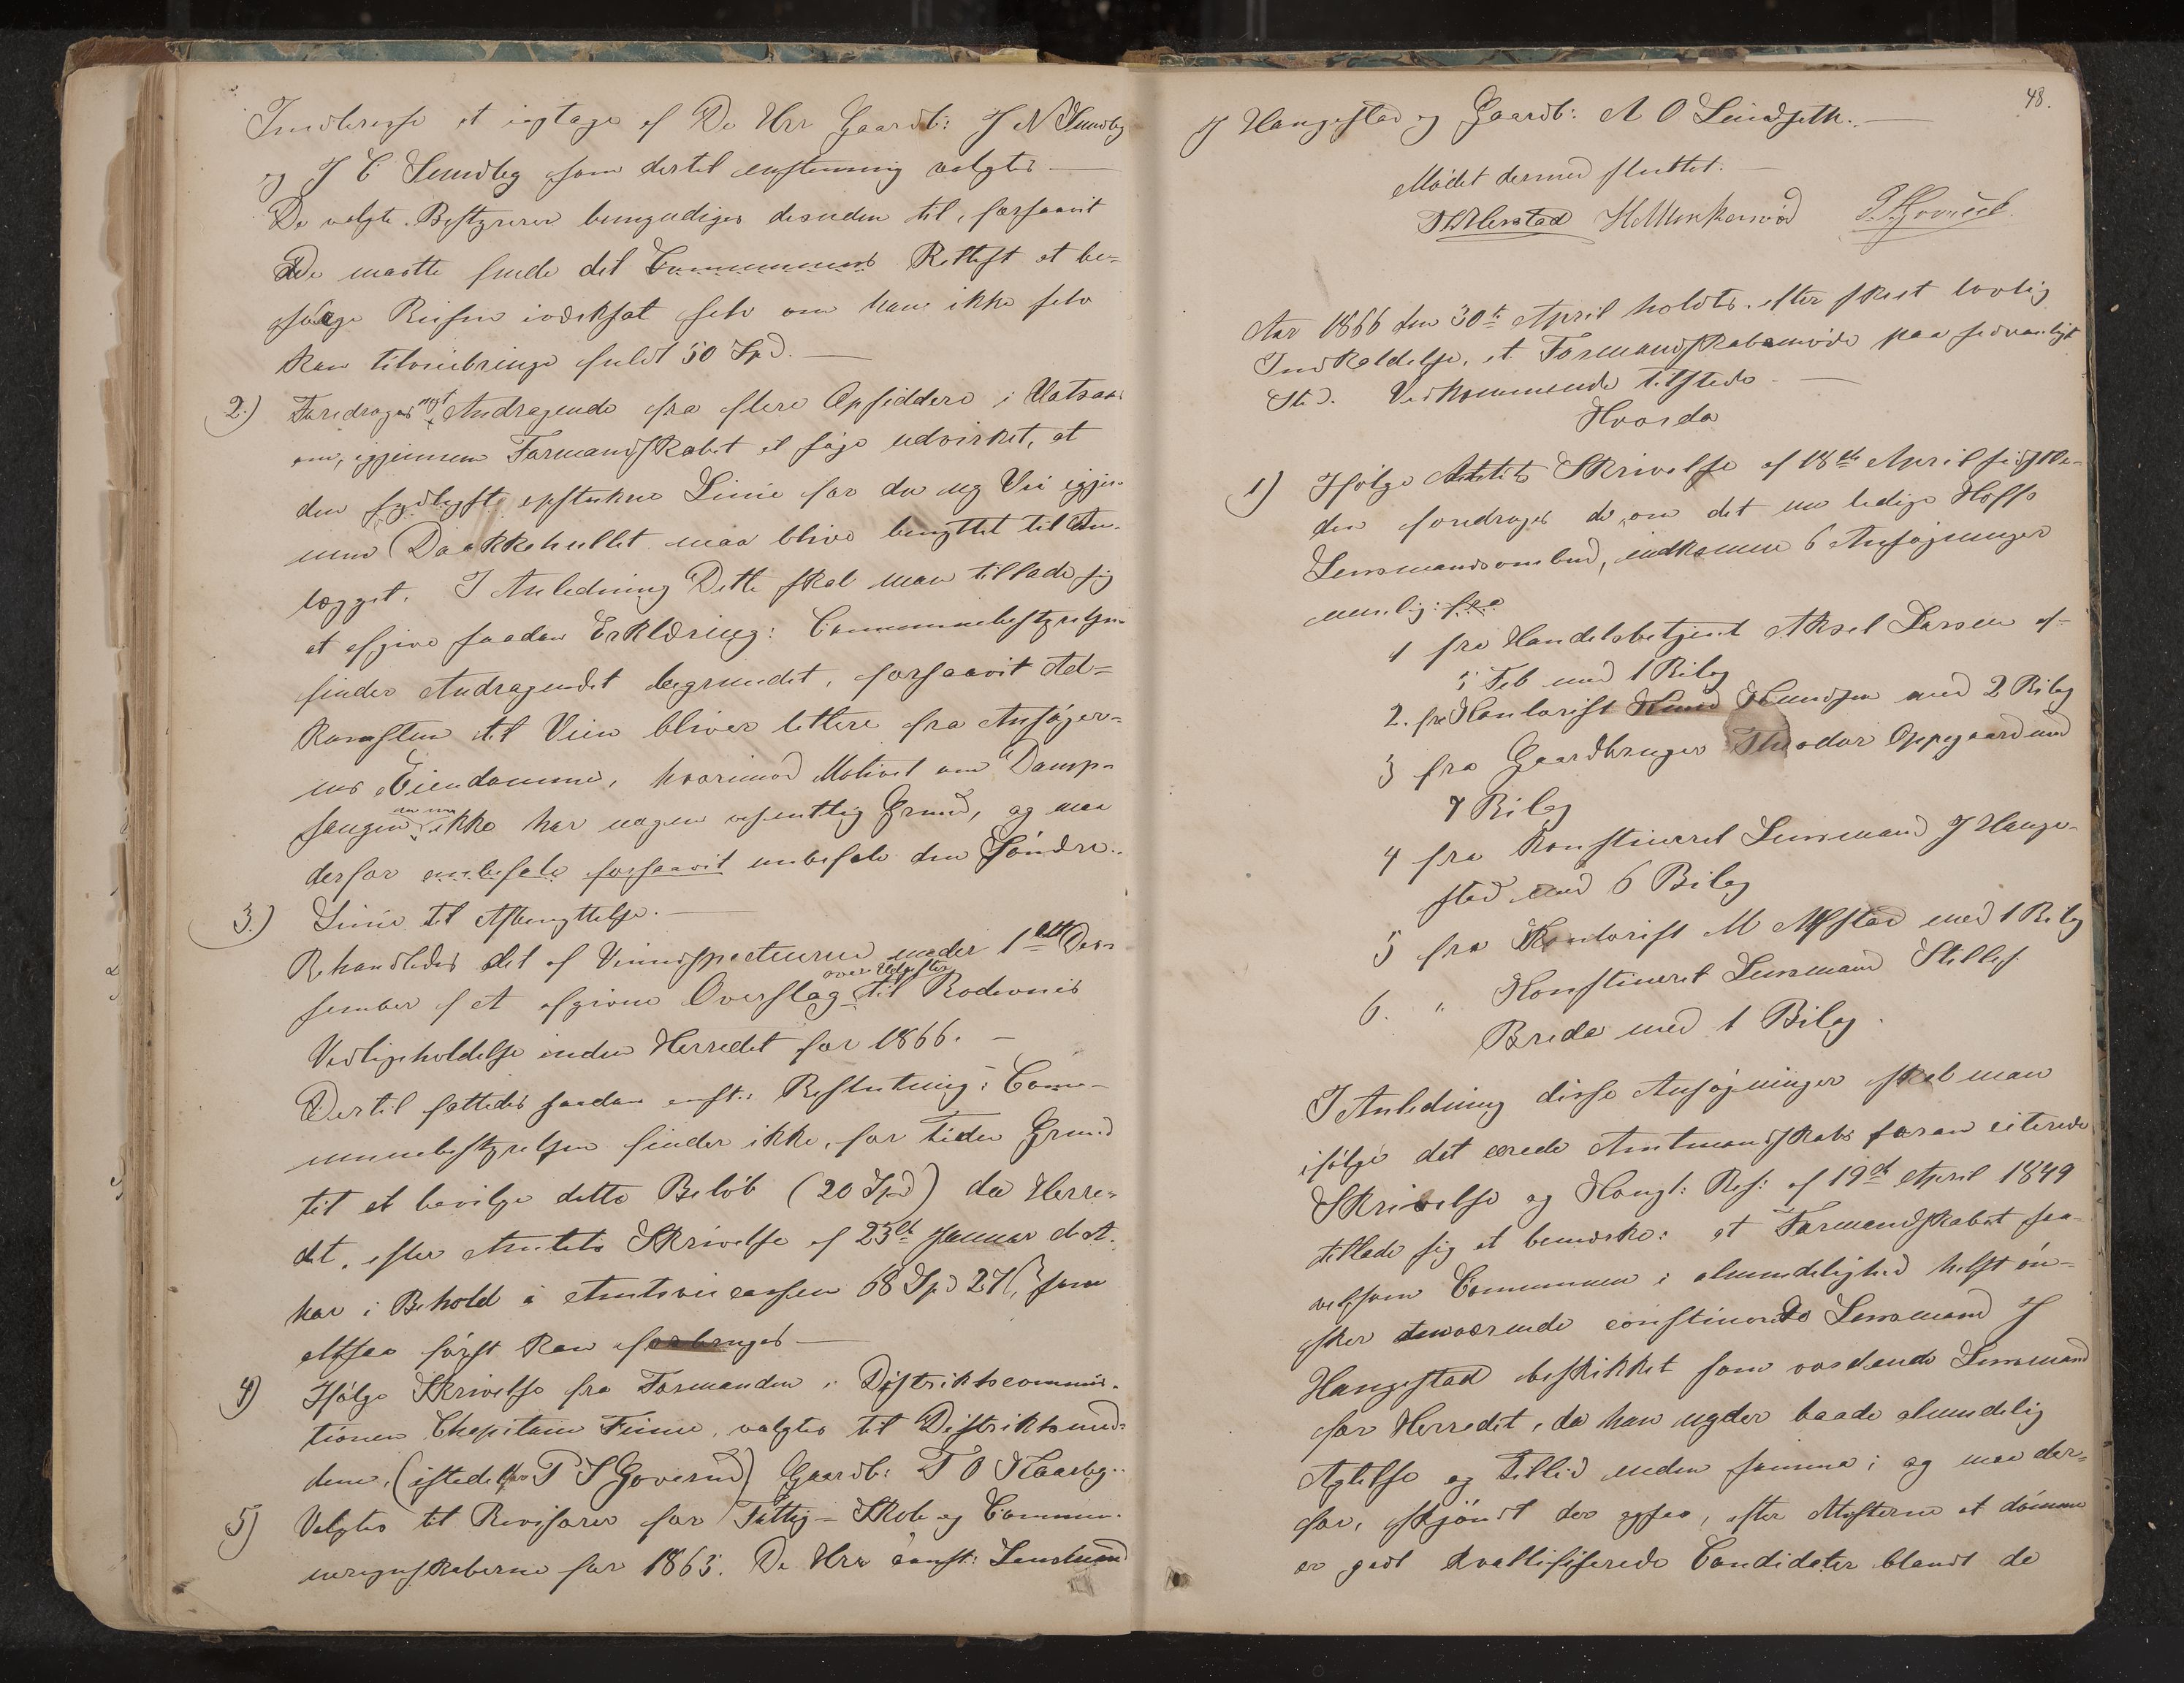 Interesse at iagtage af De Hrr Gaardb: J N Sundby
og J C Sundby som dertil enstemmig valgtes —
De valgte Bestyrere bemyndiges desuden til, forsaavit
De maatte finde det Communens Rettest at be-
sørge Reisen iverksat selv om han ikke selv
kan tilveiebringe fuldt 50 Spd. —
2.) Foredroges nyt Andragende fra flere Opsiddere i Vatsaas
om, igjennem Formandskabet at søge udvirket, at
den sydligste opstukne Linie for den ny Vei igjen-
nem Daakkehullet maa blive benyttet til An-
lægget. I Anledning Dette skal man tillade sig
at afgive saadan Erklæring: Communebestyrelsen
finder Andragendet begrundet, forsaavit Ad-
komsten til Veien bliver lettere fra Ansøger-
nes Eiendomme, hvorimod Motivet om Damp-
saugen ikke har nogen væsentlig Grund, og maa
derfor anbefale forsaavit anbefale den Søndre
3.) Linie til Afbenyttelse. —
Behandledes det af Veiinspecteuren under 1ste De-
sember f A afgivne Overslag over Udgifter til Rodeveies
Vedligeholdelse inden Herredet for 1866. —
Dertil fattedes saadan enst: Beslutning: Com-
munebestyrelsen finder ikke, for tiden Grund
til at bevilge dette Beløb (20 Spd) da Herre-
det, efter Amtets Skrivelse af 23de Januar d. A.
har i Behold i Amtsveicassen 68 Spd 27 ß, som
altsaa først kan forbruges —
4) Ifølge Skrivelse fra Formanden i Distriktscommis-
tionen Chapitain Finne, valgtes til Distriktsmed-
dem, (istedetfor P S Goverud) Gaardb: T O Kaasby
5) Valgtes til Revisorer for Fattig- Skole og Commu-
neregnskaberne for 1865. De Hrr const: Lensmand
48.
J Haugestad og Gaardb: A O Lindseth. —
Mødet dermed sluttet. —
Aar 1866 den 30te April holdtes efter skeet lovlig
Indkaldelse, et Formandskabsmøde paa sedvanligt
Sted. Vedkommende tilstede. —
Hvorda
1) Ifølge Amtets Skrivelse af 18de April sidstle-
den foredroges de, om det nu ledige Hoffs
Lensmandsombud, indkomne 6 Ansøgninger
nemlig: fra
1 fra Handelsbetjent Aksel Larsen af
5 Feb med 1 Bilag
2. fra Kontorist Knud Knudsen med 2 Bilag
3 fra Gaardbruger Theodor Oppegaard med
7 Bilag
4 fra Konstitueret Lensmand J Hauge-
stad med 6 Bilag
5 fra Kontorist M Alfstad med 1 Bilag
6. " Konstitueret Lensmand Stillef
Breda med 1 Bilag.
I Anledning disse Ansøgninger skal man
ifølge det ærede Amtmandskabs foran citerede
Skrivelse og Kongl: Res: af 19de April 1849
tillade sig at bemærke: at Formandskabet saa-
velsom Communen i almindelighed helst øn-
sker den værende constituerede Lensmand J
Haugestad beskikket som vordende Lensmand
for Herredet, da han nyder baade almindelig
Agtelse og Tillid inden samme; og maa der-
for, skjøndt der ogsaa, efter Attesterne at dømme
er godt kvallifiserede Candidater blandt de